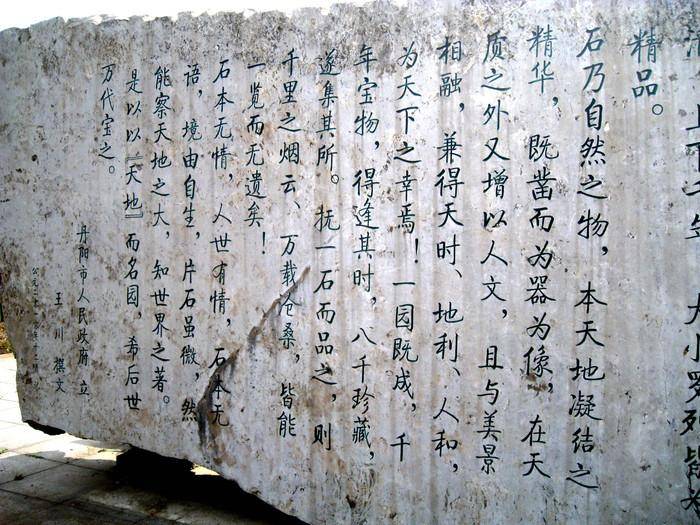 精品。
石乃自然之物，本天地凝结之
精华，既凿而为器为像，在天
质之外又增以人文，且与美景
相融，兼得天时、地利、人和，
为天下之幸焉！一园既成，千
年宝物，得逢其时，八千珍藏，
遂集其所。抚一石而品之，则
千里之烟云、万载沧桑，皆能
一览而无遗矣！
石本无情，人世有情，石本无
语，境由自生，片石虽微，然
能察天地之大，知世界之著。
是以以『天地』而名园，希后世
万代宝之。
丹阳市人民政府 立
王川 撰文